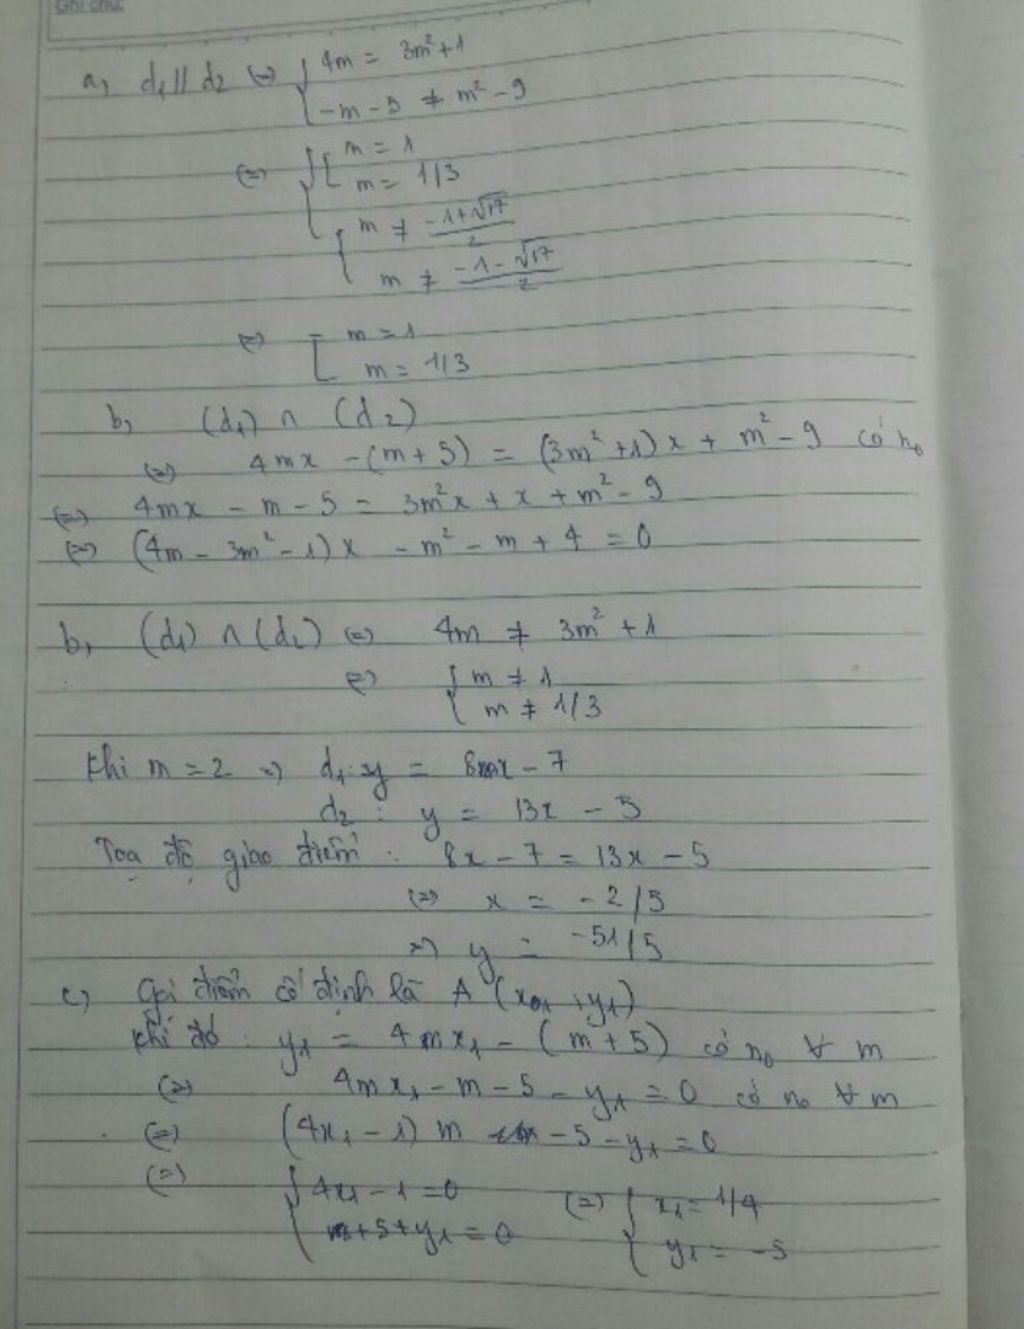 Ghi chú:
a, d₁ // d₂ (=) { 4m = 3m² + 1
-m - 5 ≠ m² - 9
(=) { [ m = 1
m = 1/3
{ m ≠ (-1 + √17)/2
m ≠ (-1 - √17)/2
(=) [ m = 1
m = 1/3
b, (d₁) ∩ (d₂)
(=) 4mx - (m + 5) = (3m² + 1)x + m² - 9 có n₀
(=) 4mx - m - 5 = 3m²x + x + m² - 9
(=) (4m - 3m² - 1)x - m² - m + 4 = 0
b, (d₁) ∩ (d₂) (=) 4m ≠ 3m² + 1
(=) { m ≠ 1
m ≠ 1/3
Khi m = 2 => d₁: y = 8x - 7
d₂ : y = 13x - 5
Toạ độ giao điểm : 8x - 7 = 13x - 5
(=) x = -2/5
=> y = -51/5
c, Gọi điểm cố định là A (x₁ ; y₁)
Khi đó : y₁ = 4mx₁ - (m + 5) có n₀ ∀ m
(=) 4mx₁ - m - 5 - y₁ = 0 có n₀ ∀ m
(=) (4x₁ - 1) m - 5 - y₁ = 0
(=) { 4x₁ - 1 = 0 (=) { x₁ = 1/4
5 + y₁ = 0 y₁ = -5